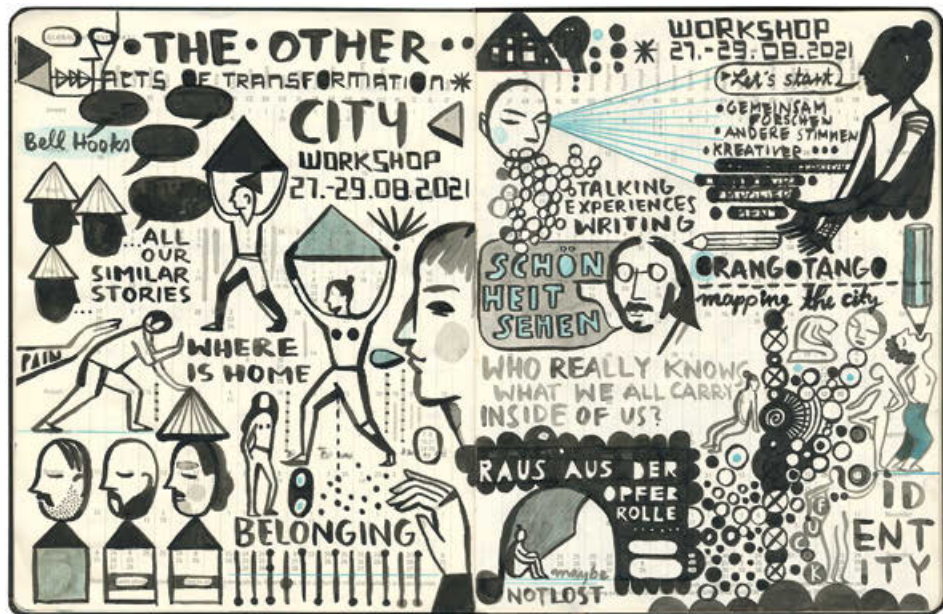 • THE • OTHER • •
ACTS OF TRANSFORMATION *
CITY
WORKSHOP
27.-29.08.2021
Bell Hooks
...ALL
OUR
SIMILAR
STORIES
...
PAIN
WHERE
IS HOME
BELONGING
WORKSHOP
* 27.-29.08.2021
Let's start
• GEMEINSAM
FORSCHEN
• ANDERE STIMMEN
• KREATIVER •••
TALKING
EXPERIENCES
WRITING
SCHÖN
HEIT
SEHEN
ORANGOTANGO
mapping the city
WHO REALLY KNOWS
WHAT WE ALL CARRY
INSIDE OF US?
RAUS AUS DER
OPFER
ROLLE
maybe
NOT LOST
ID
ENT
ITY